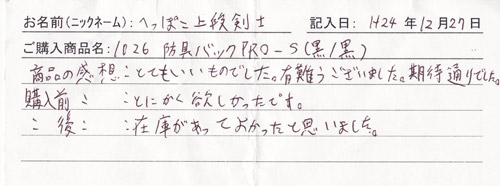 お名前(ニックネーム): へっぽこ上級剣士 記入日: H24年12月27日
ご購入商品名: 1026 防具バックPRO-S(黒/黒)
商品の感想: とてもいいものでした。有難うございました。期待通りでした。
購入前 〃 : とにかく欲しかったです。
〃 後 〃 : 在庫があってよかったと思いました。